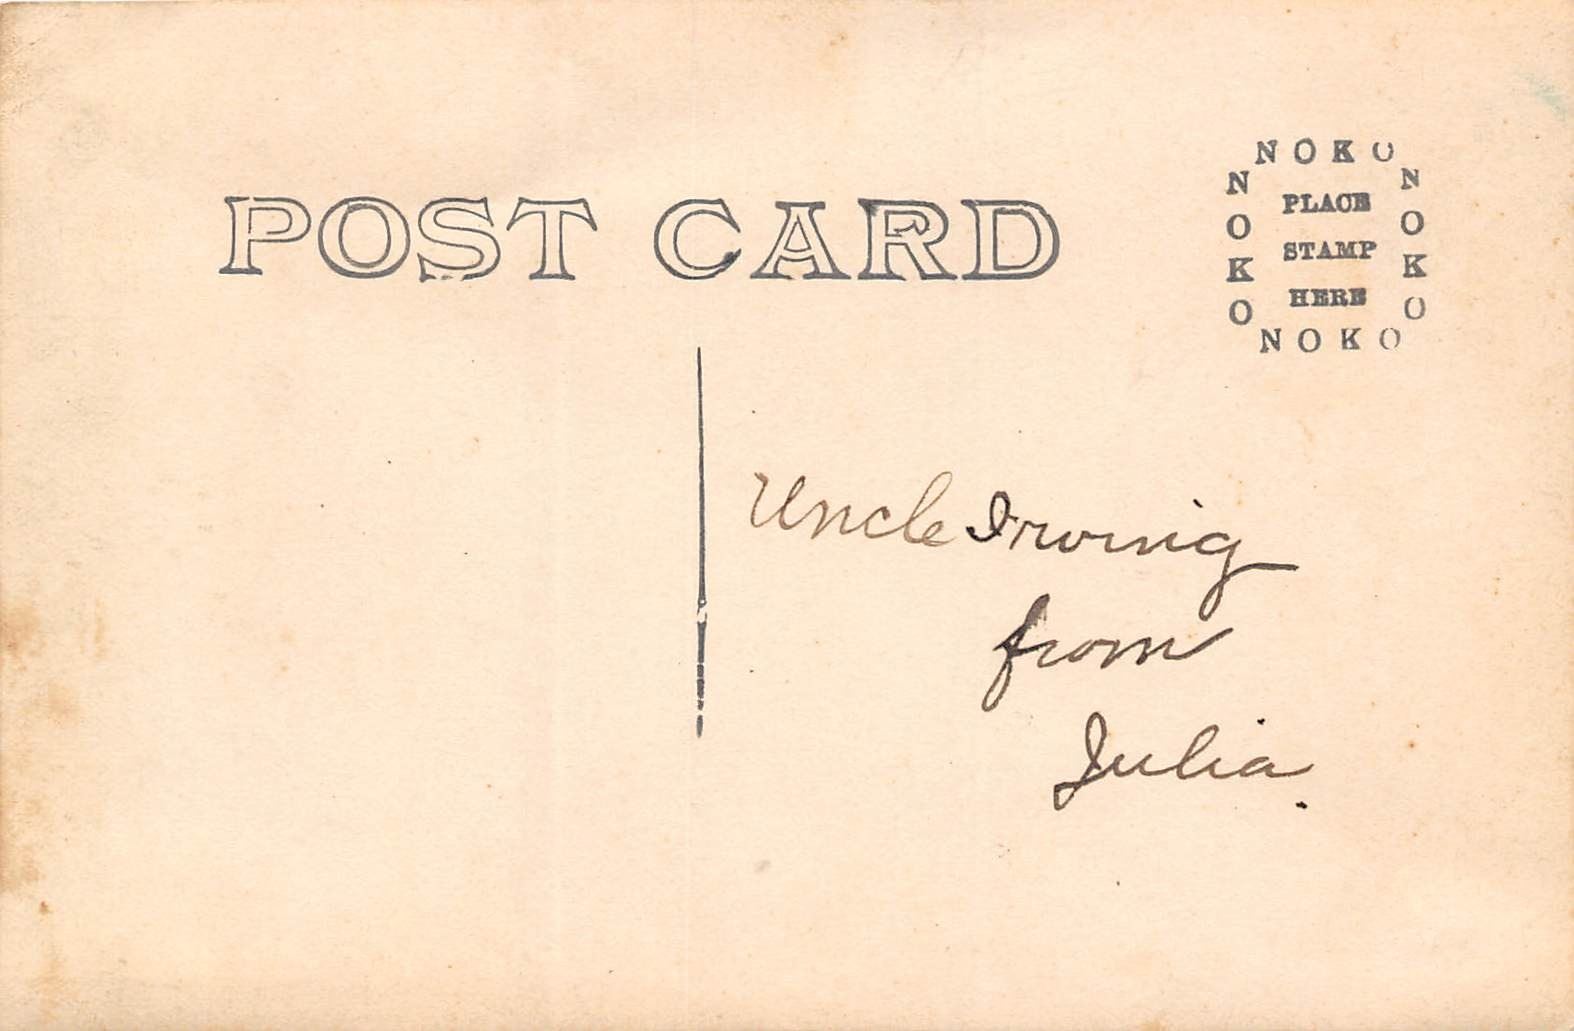 POST CARD
NOKO
NOKO
NOKO
NOKO
PLACE
STAMP
HERE
Uncle Irving
from
Julia.